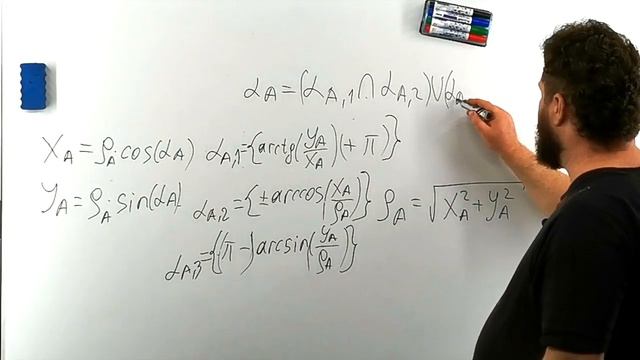 α_A = (α_{A,1} ∩ α_{A,2}) ∪ (α_A
x_A = ρ_A · cos(α_A) α_{A,1} = {arctg(y_A/x_A) (+ π)}
y_A = ρ_A · sin(α_A) α_{A,2} = {± arccos(x_A/ρ_A)} ρ_A = √(x_A² + y_A²)
α_{A,3} = {(π −) arcsin(y_A/ρ_A)}